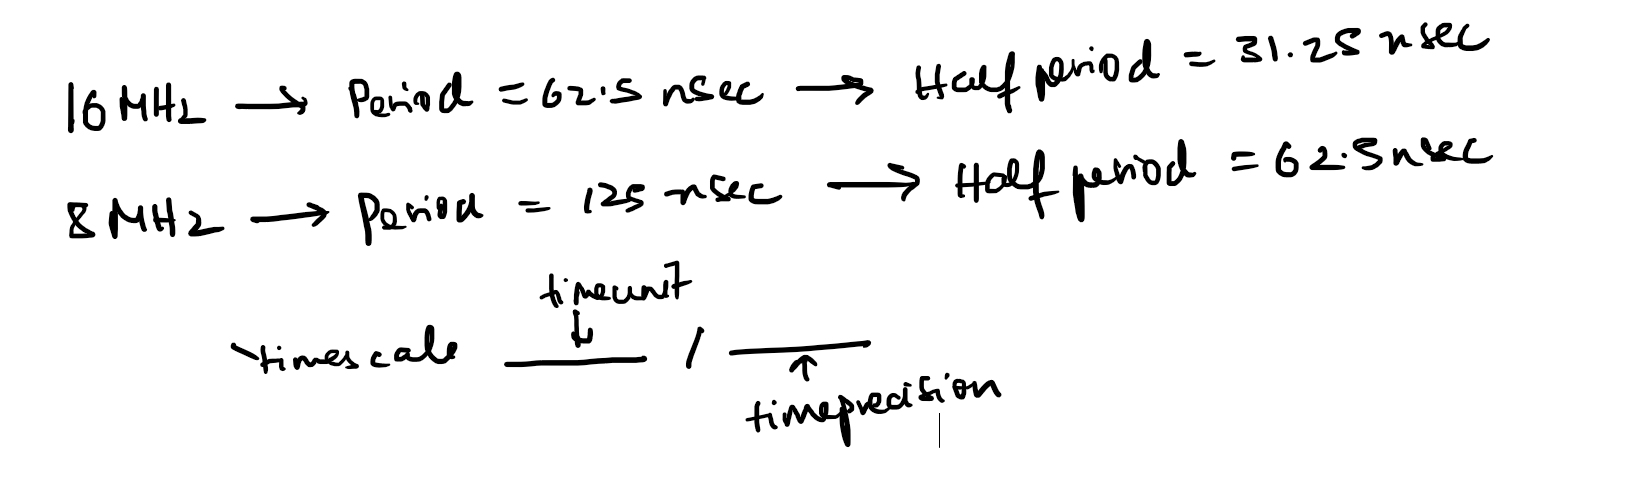 16 MHz → Period = 62.5 nsec → Half period = 31.25 nsec
8 MHz → Period = 125 nsec → Half period = 62.5 nsec
timeunit
`timescale ____ / ____
timeprecision